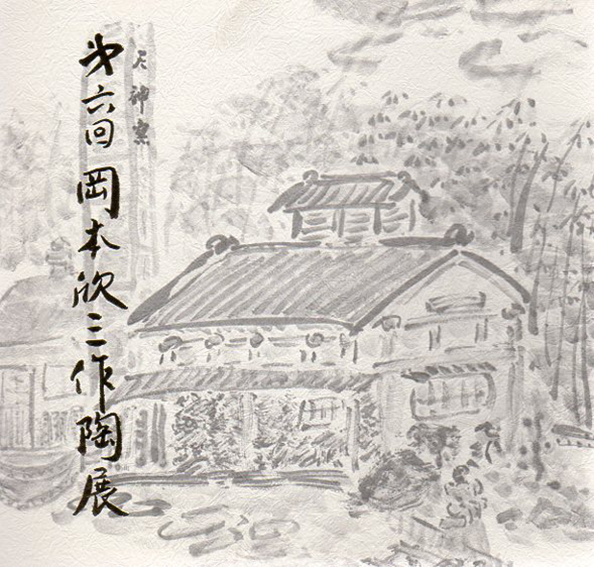 天神窯
㐧六回 岡本欣三作陶展